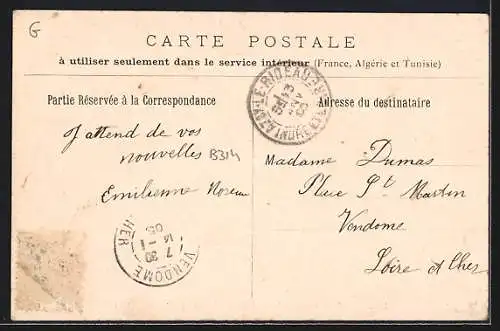 G
CARTE POSTALE
à utiliser seulement dans le service intérieur (France, Algérie et Tunisie)
Partie Réservée à la Correspondance
Adresse du destinataire
AZAY-LE-RIDEAU
INDRE ET
J'attend de vos
nouvelles B314
Emilienne Moreau
Madame Dumas
Place St Martin
Vendome
Loire et Cher
VENDOME
CHER
7 30
14 - 1
05